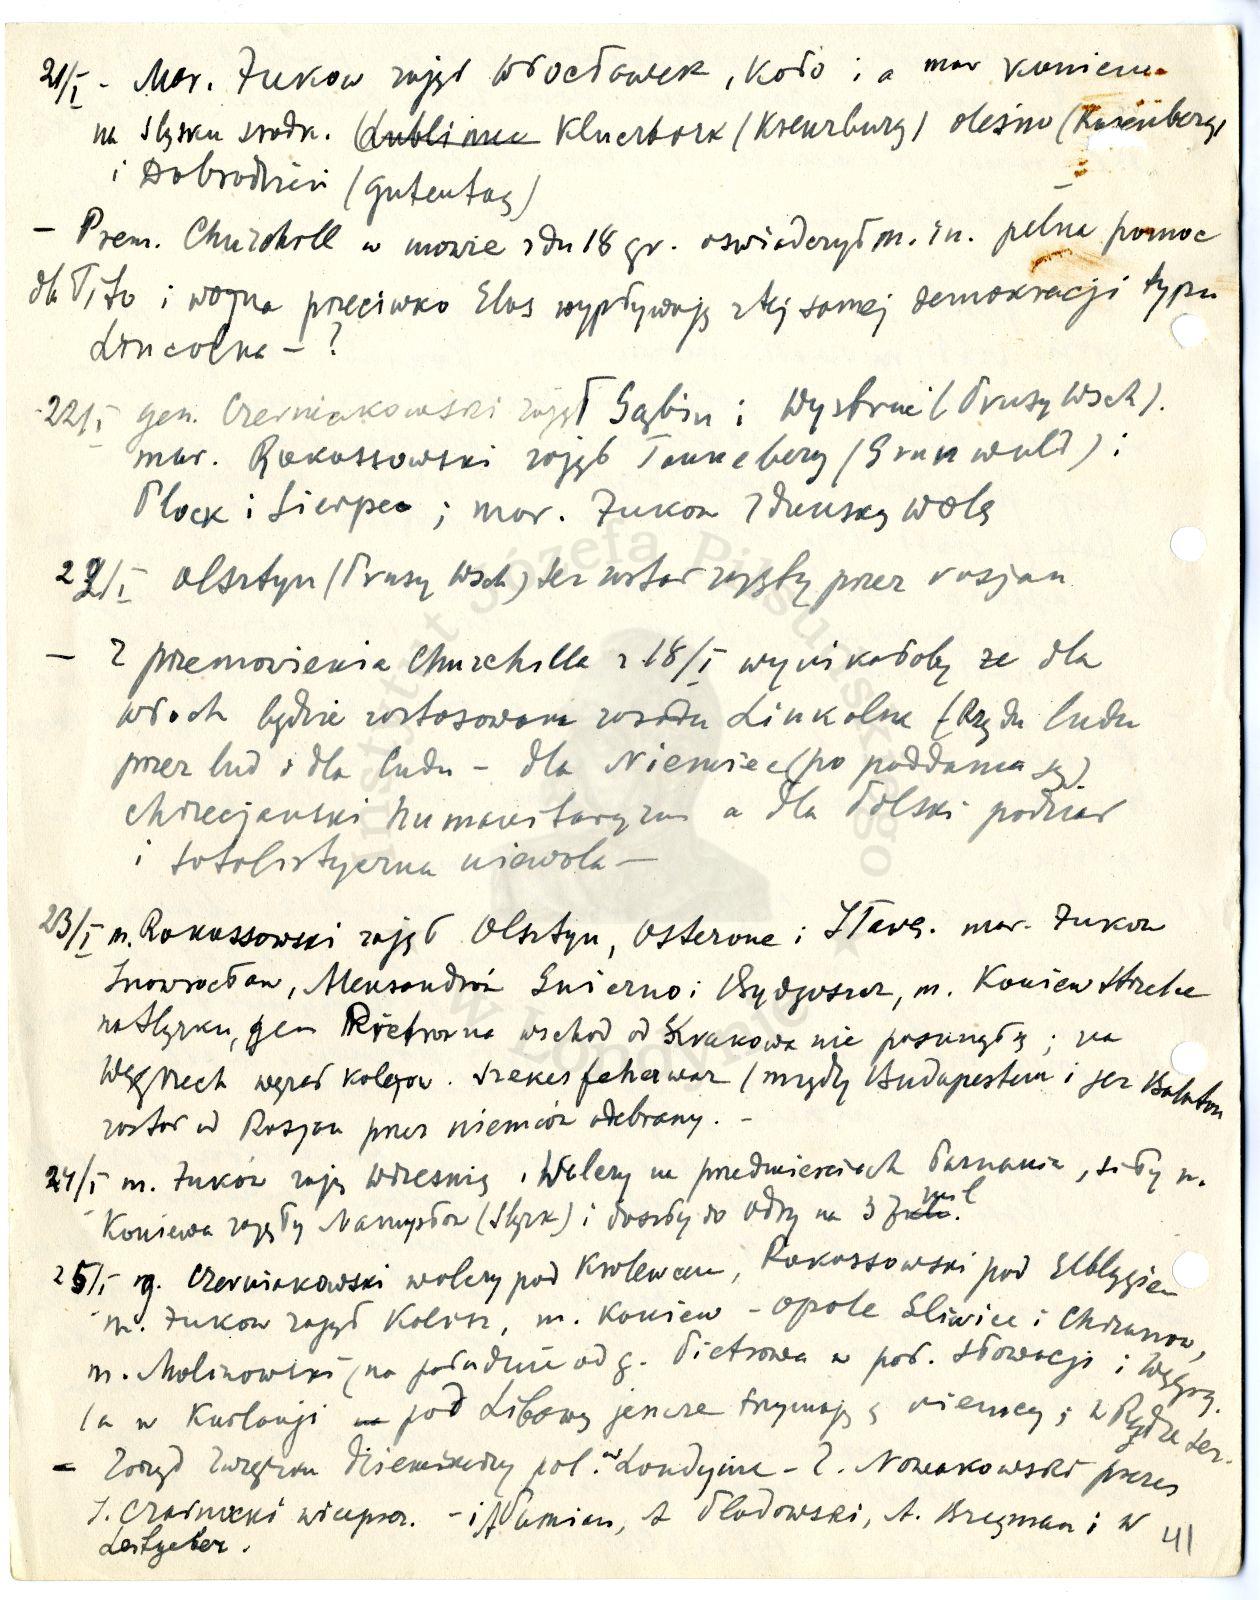 21/I - Mar. Żukow zajął Włocławek, Koło i a mar Koniew
na Śląsku środk. (Lublinie Kluczbork (Kreuzburg) Oleśno (Rosenberg)
i Dobrodzień (Gutentag)
- Prem. Churchill w mowie z dn 18 gr. oświadczył m. in. pełna pomoc
dla Tito i wojna przeciwko Elas wypływają z tej samej demokracji typu
Lincolna - ?
22/I gen. Czerniakowski zajął Gąbin i Wystruć (Prusy Wsch).
mar. Rokossowski zajął Tanneberg (Grunwald) i
Płock i Sierpc ; mar. Żukow Zduńską Wolę
22/I Olsztyn (Prusy Wsch) też został zajęty przez rosjan
- Z przemówienia Churchilla z 18/I wynikałoby że dla
Włoch będzie zastosowana zasada Linkolna (Rządu ludu
przez lud i dla ludu - dla Niemiec (po poddaniu się)
chrześcijański humanitaryzm a dla Polski podział
i totalistyczna niewola -
23/I m. Rokossowski zajął Olsztyn, Osterode i Iławę. mar. Żukow
Inowrocław, Aleksandrów Gniezno i Bydgoszcz, m. Koniew Strzelce
na Śląsku, gen Pietrow na wschód od Krakowa nie posunął się ; na
Węgrzech węzeł kolejow. Szekesfeherwar (między Budapesztem i jez Balaton
został od Rosjan przez niemców odebrany. -
24/I m. Żuków zajął Wrześnię, Walczy na przedmieściach Poznania, siły m.
Koniewa zajęły Namysłów (Śląsk) i doszły do Odry na 37 mil.
25/I g. Czerniakowski walczy pod Królewcem, Rokossowski pod Elblągiem
m. Żukow zajął Kalisz, m. Koniew - Opole Gliwice i Chrzanów,
m. Malinowski (na południe od g. Pietrowa w poł. Słowacji i Węgry.
(a w Kurlandji pod Libawą jeszcze trzymają się niemcy ; w Rydze też.
- Zarząd Związku dziennikarzy pol. w Londynie - Z. Nowakowski prezes
S. Czarnocki wiceprez. - i Damian, Pladowski, A. Bregman i W
Leitgeber.
41